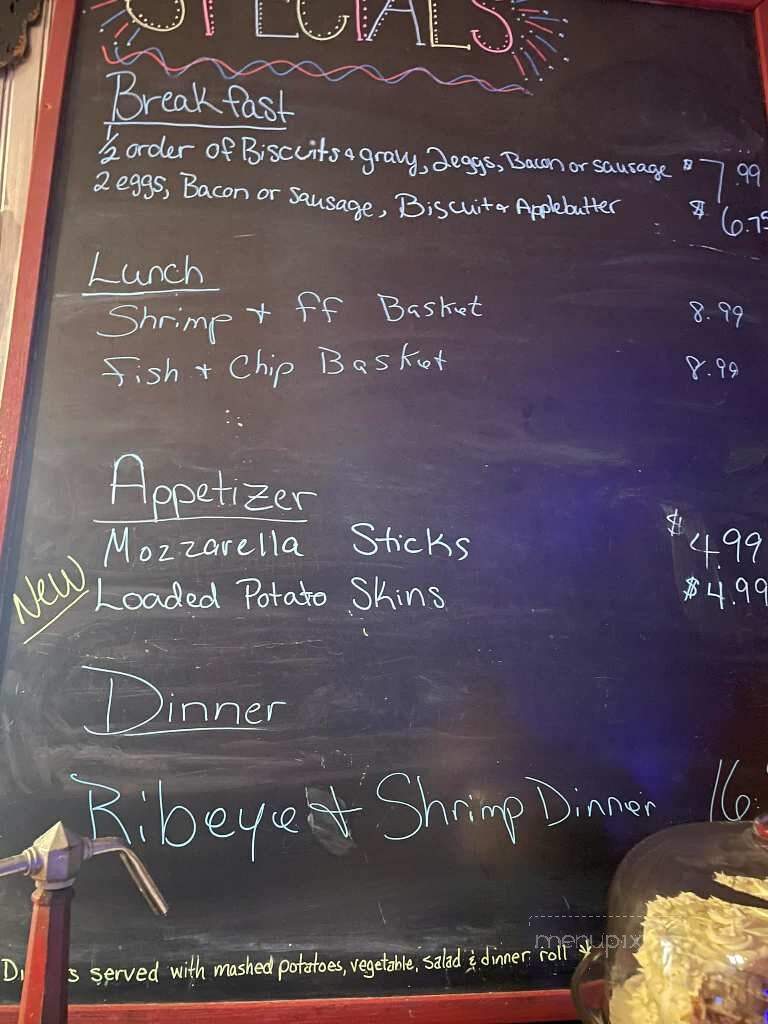 SPECIALS
Breakfast
1/2 order of Biscuits & gravy, 2eggs, Bacon or sausage $7.99
2 eggs, Bacon or Sausage, Biscuit & Applebutter $6.75
Lunch
Shrimp + ff Basket 8.99
Fish + Chip Basket 8.99
Appetizer
Mozzarella Sticks $4.99
New Loaded Potato Skins $4.99
Dinner
Ribeye + Shrimp Dinner 16.
served with mashed potatoes, vegetable, salad & dinner roll *
menupix